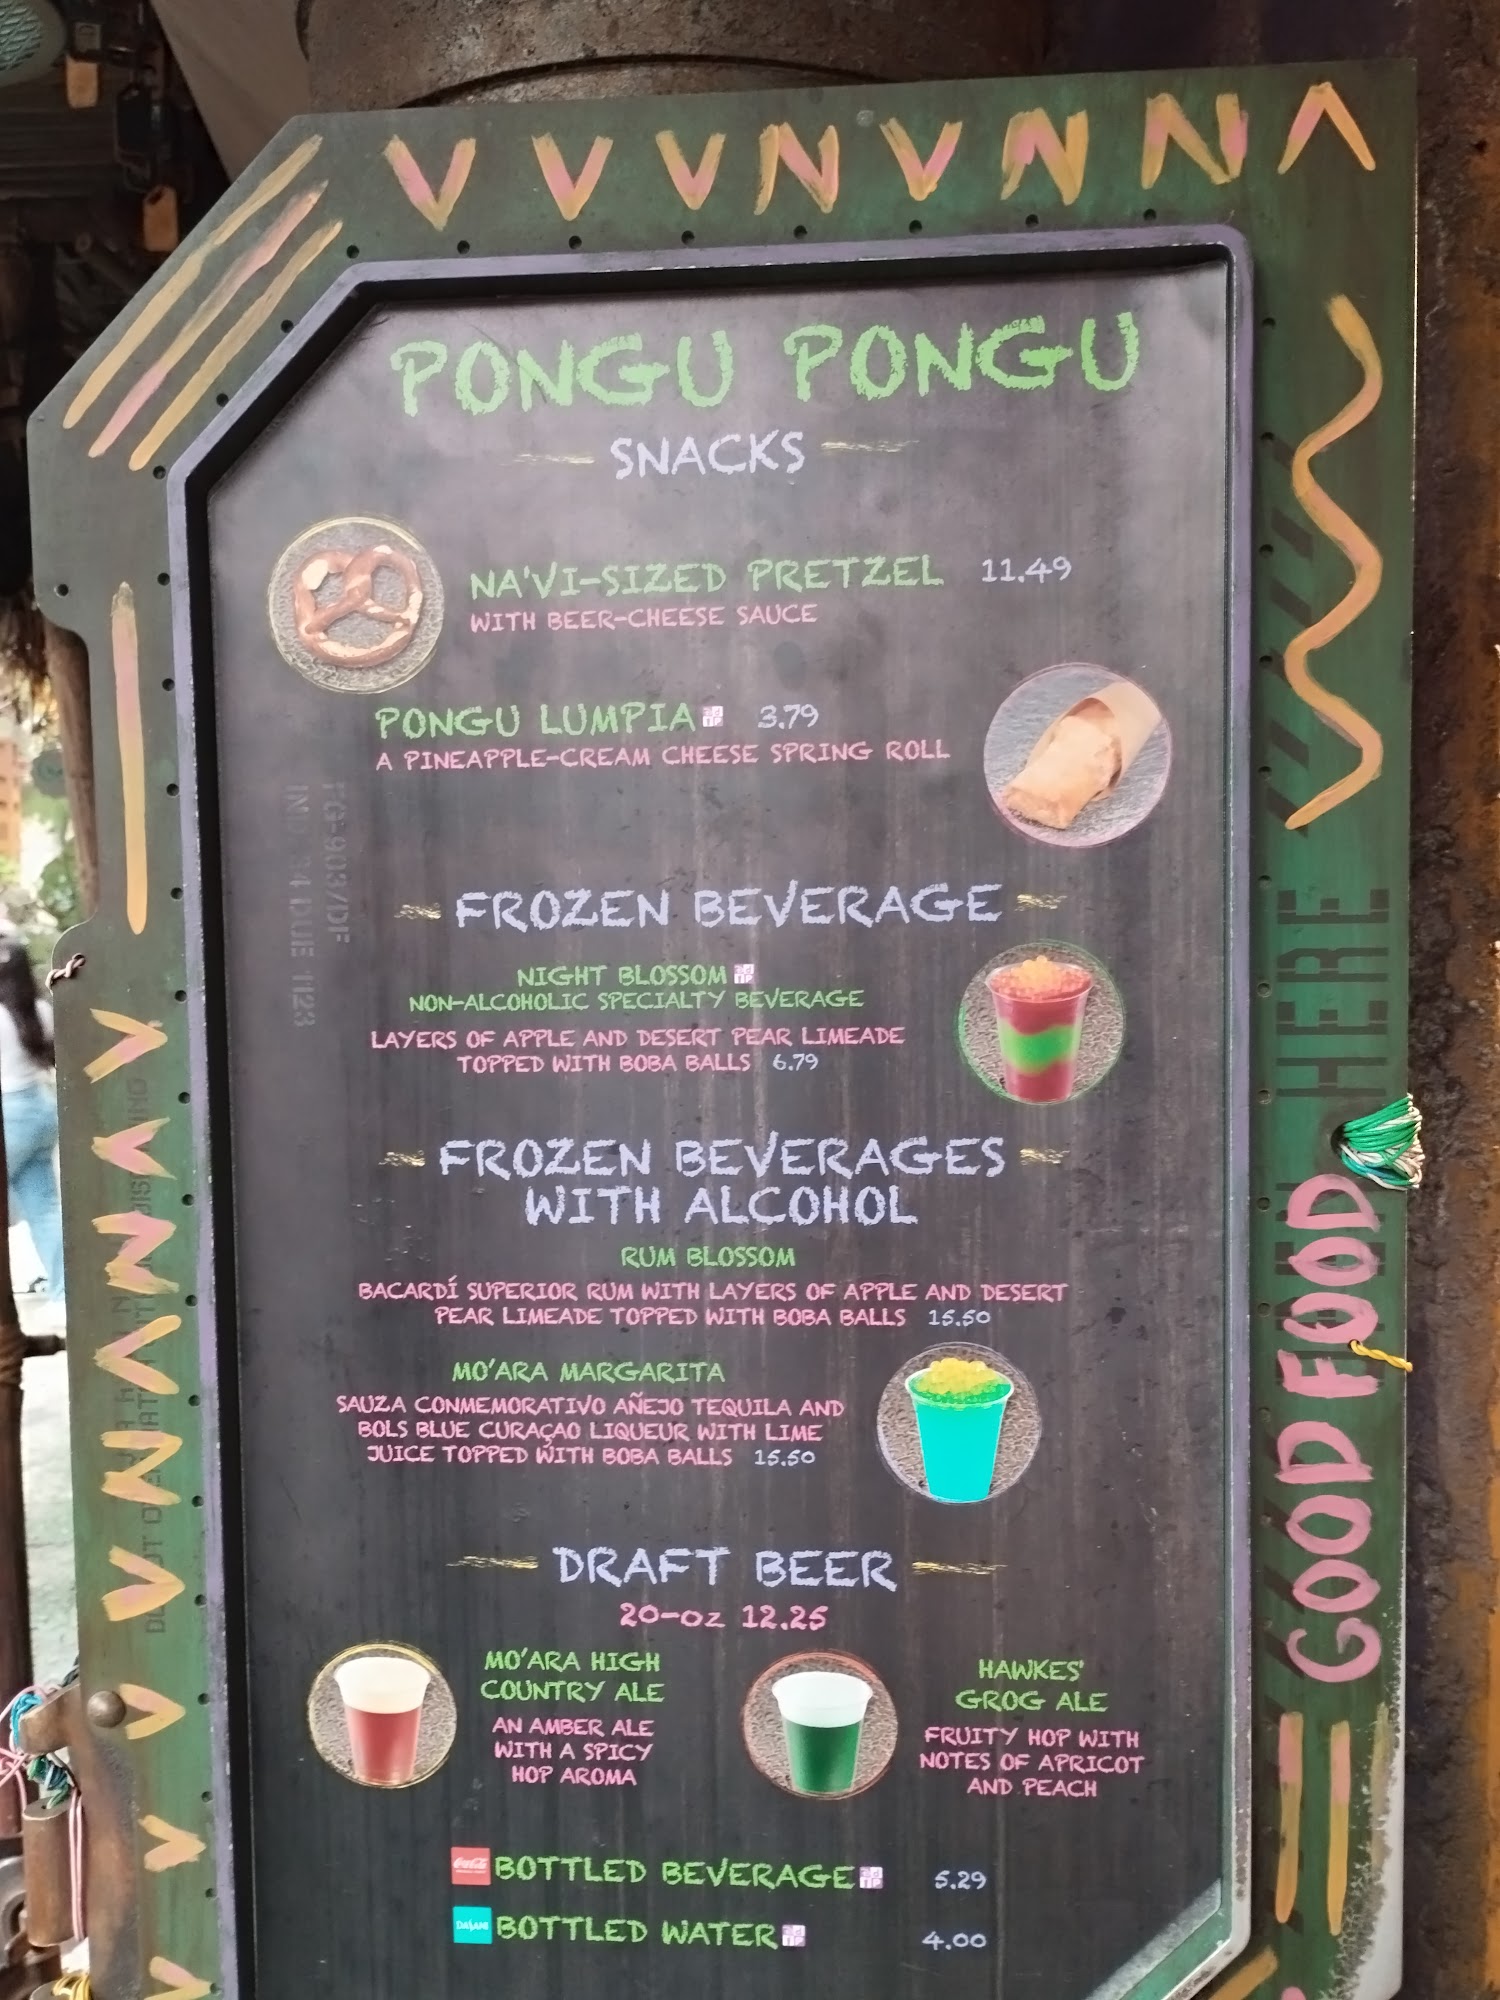 PONGU PONGU
SNACKS
NA'VI-SIZED PRETZEL 11.49
WITH BEER-CHEESE SAUCE
PONGU LUMPIA 3.79
A PINEAPPLE-CREAM CHEESE SPRING ROLL
FROZEN BEVERAGE
NIGHT BLOSSOM
NON-ALCOHOLIC SPECIALTY BEVERAGE
LAYERS OF APPLE AND DESERT PEAR LIMEADE
TOPPED WITH BOBA BALLS 6.79
FROZEN BEVERAGES
WITH ALCOHOL
RUM BLOSSOM
BACARDÍ SUPERIOR RUM WITH LAYERS OF APPLE AND DESERT
PEAR LIMEADE TOPPED WITH BOBA BALLS 15.50
MO'ARA MARGARITA
SAUZA CONMEMORATIVO AÑEJO TEQUILA AND
BOLS BLUE CURAÇAO LIQUEUR WITH LIME
JUICE TOPPED WITH BOBA BALLS 15.50
DRAFT BEER
20-OZ 12.25
MO'ARA HIGH
COUNTRY ALE
AN AMBER ALE
WITH A SPICY
HOP AROMA
HAWKES'
GROG ALE
FRUITY HOP WITH
NOTES OF APRICOT
AND PEACH
Coca-Cola BOTTLED BEVERAGE 5.29
DASANI BOTTLED WATER 4.00
GOOD FOOD
HERE